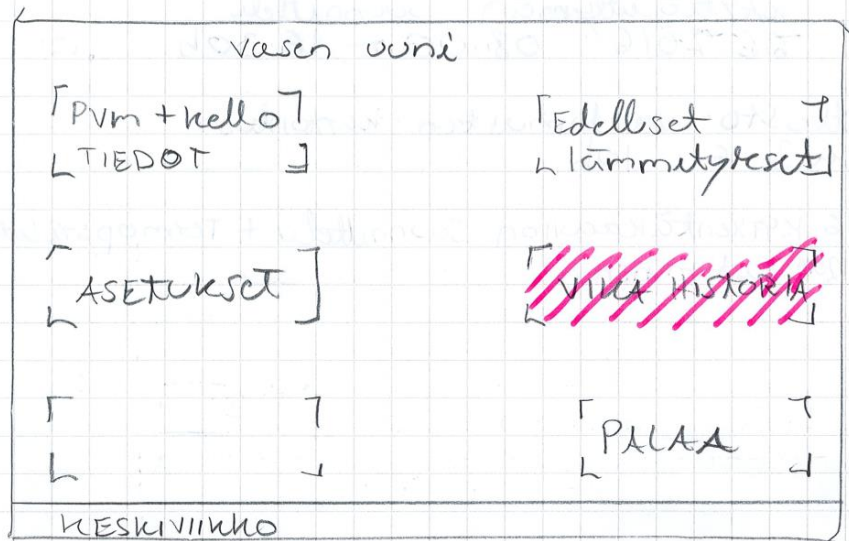 vasen uuni
Pvm + kello
TIEDOT
Edelliset
lämmitykset
ASETUKSET
VIKA HISTORIA
PALAA
KESKIVIIKKO